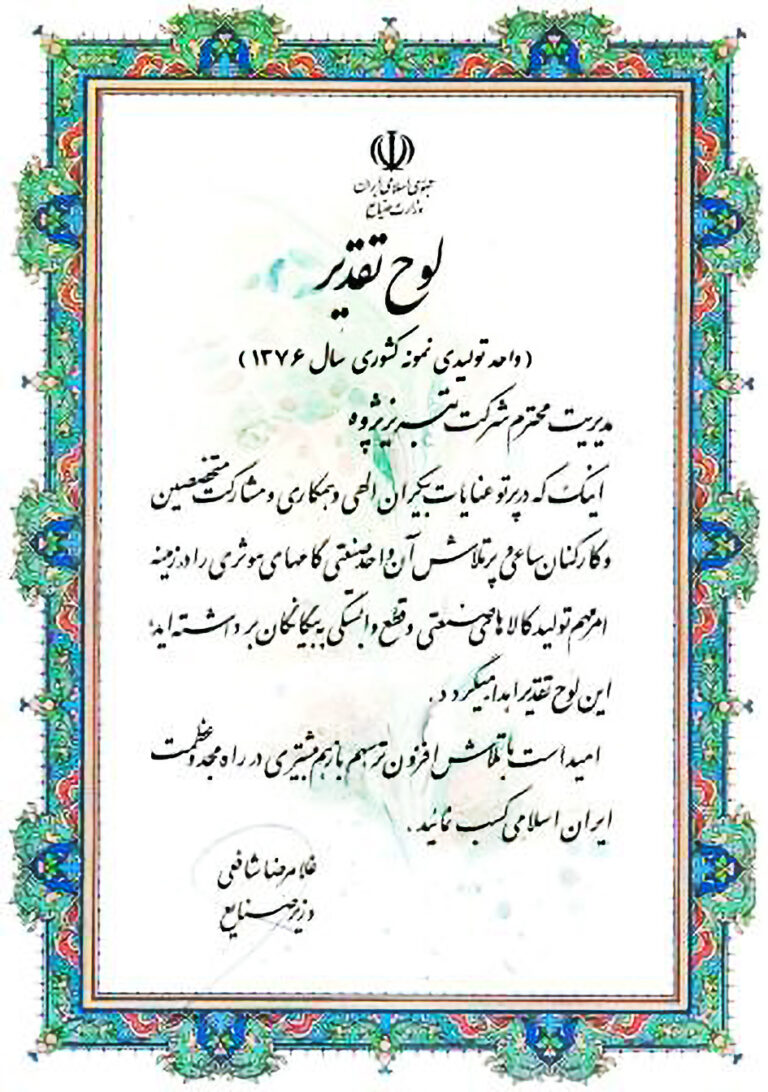 جمهوری اسلامی ایران
وزارت صنایع
لوح تقدیر
(واحد تولیدی نمونه کشوری سال ۱۳۷۶)
مدیریت محترم شرکت تبریز پژوه
اینک که در پرتو عنایات بیکران الهی و همکاری و مشارکت متخصصین
و کارکنان ساعی و پرتلاش آن واحد صنعتی گامهای موثری را در زمینه
امر مهم تولید کالاهای صنعتی و قطع وابستگی به بیگانگان برداشته اید؛
این لوح تقدیر اهدا میگردد.
امید است با تلاش افزون تر سهم باز هم بیشتری در راه مجد و عظمت
ایران اسلامی کسب نمائید.
غلامرضا شافعی
وزیر صنایع